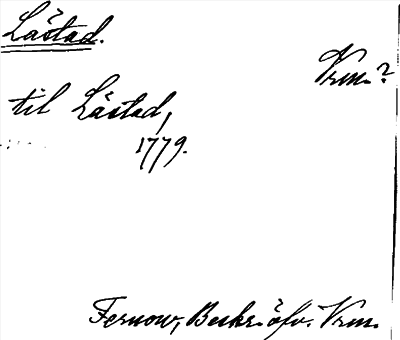 Låstad.
Vrm.?
til Låstad,
1779.
Fernow, Beskr. öfv. Vrm.